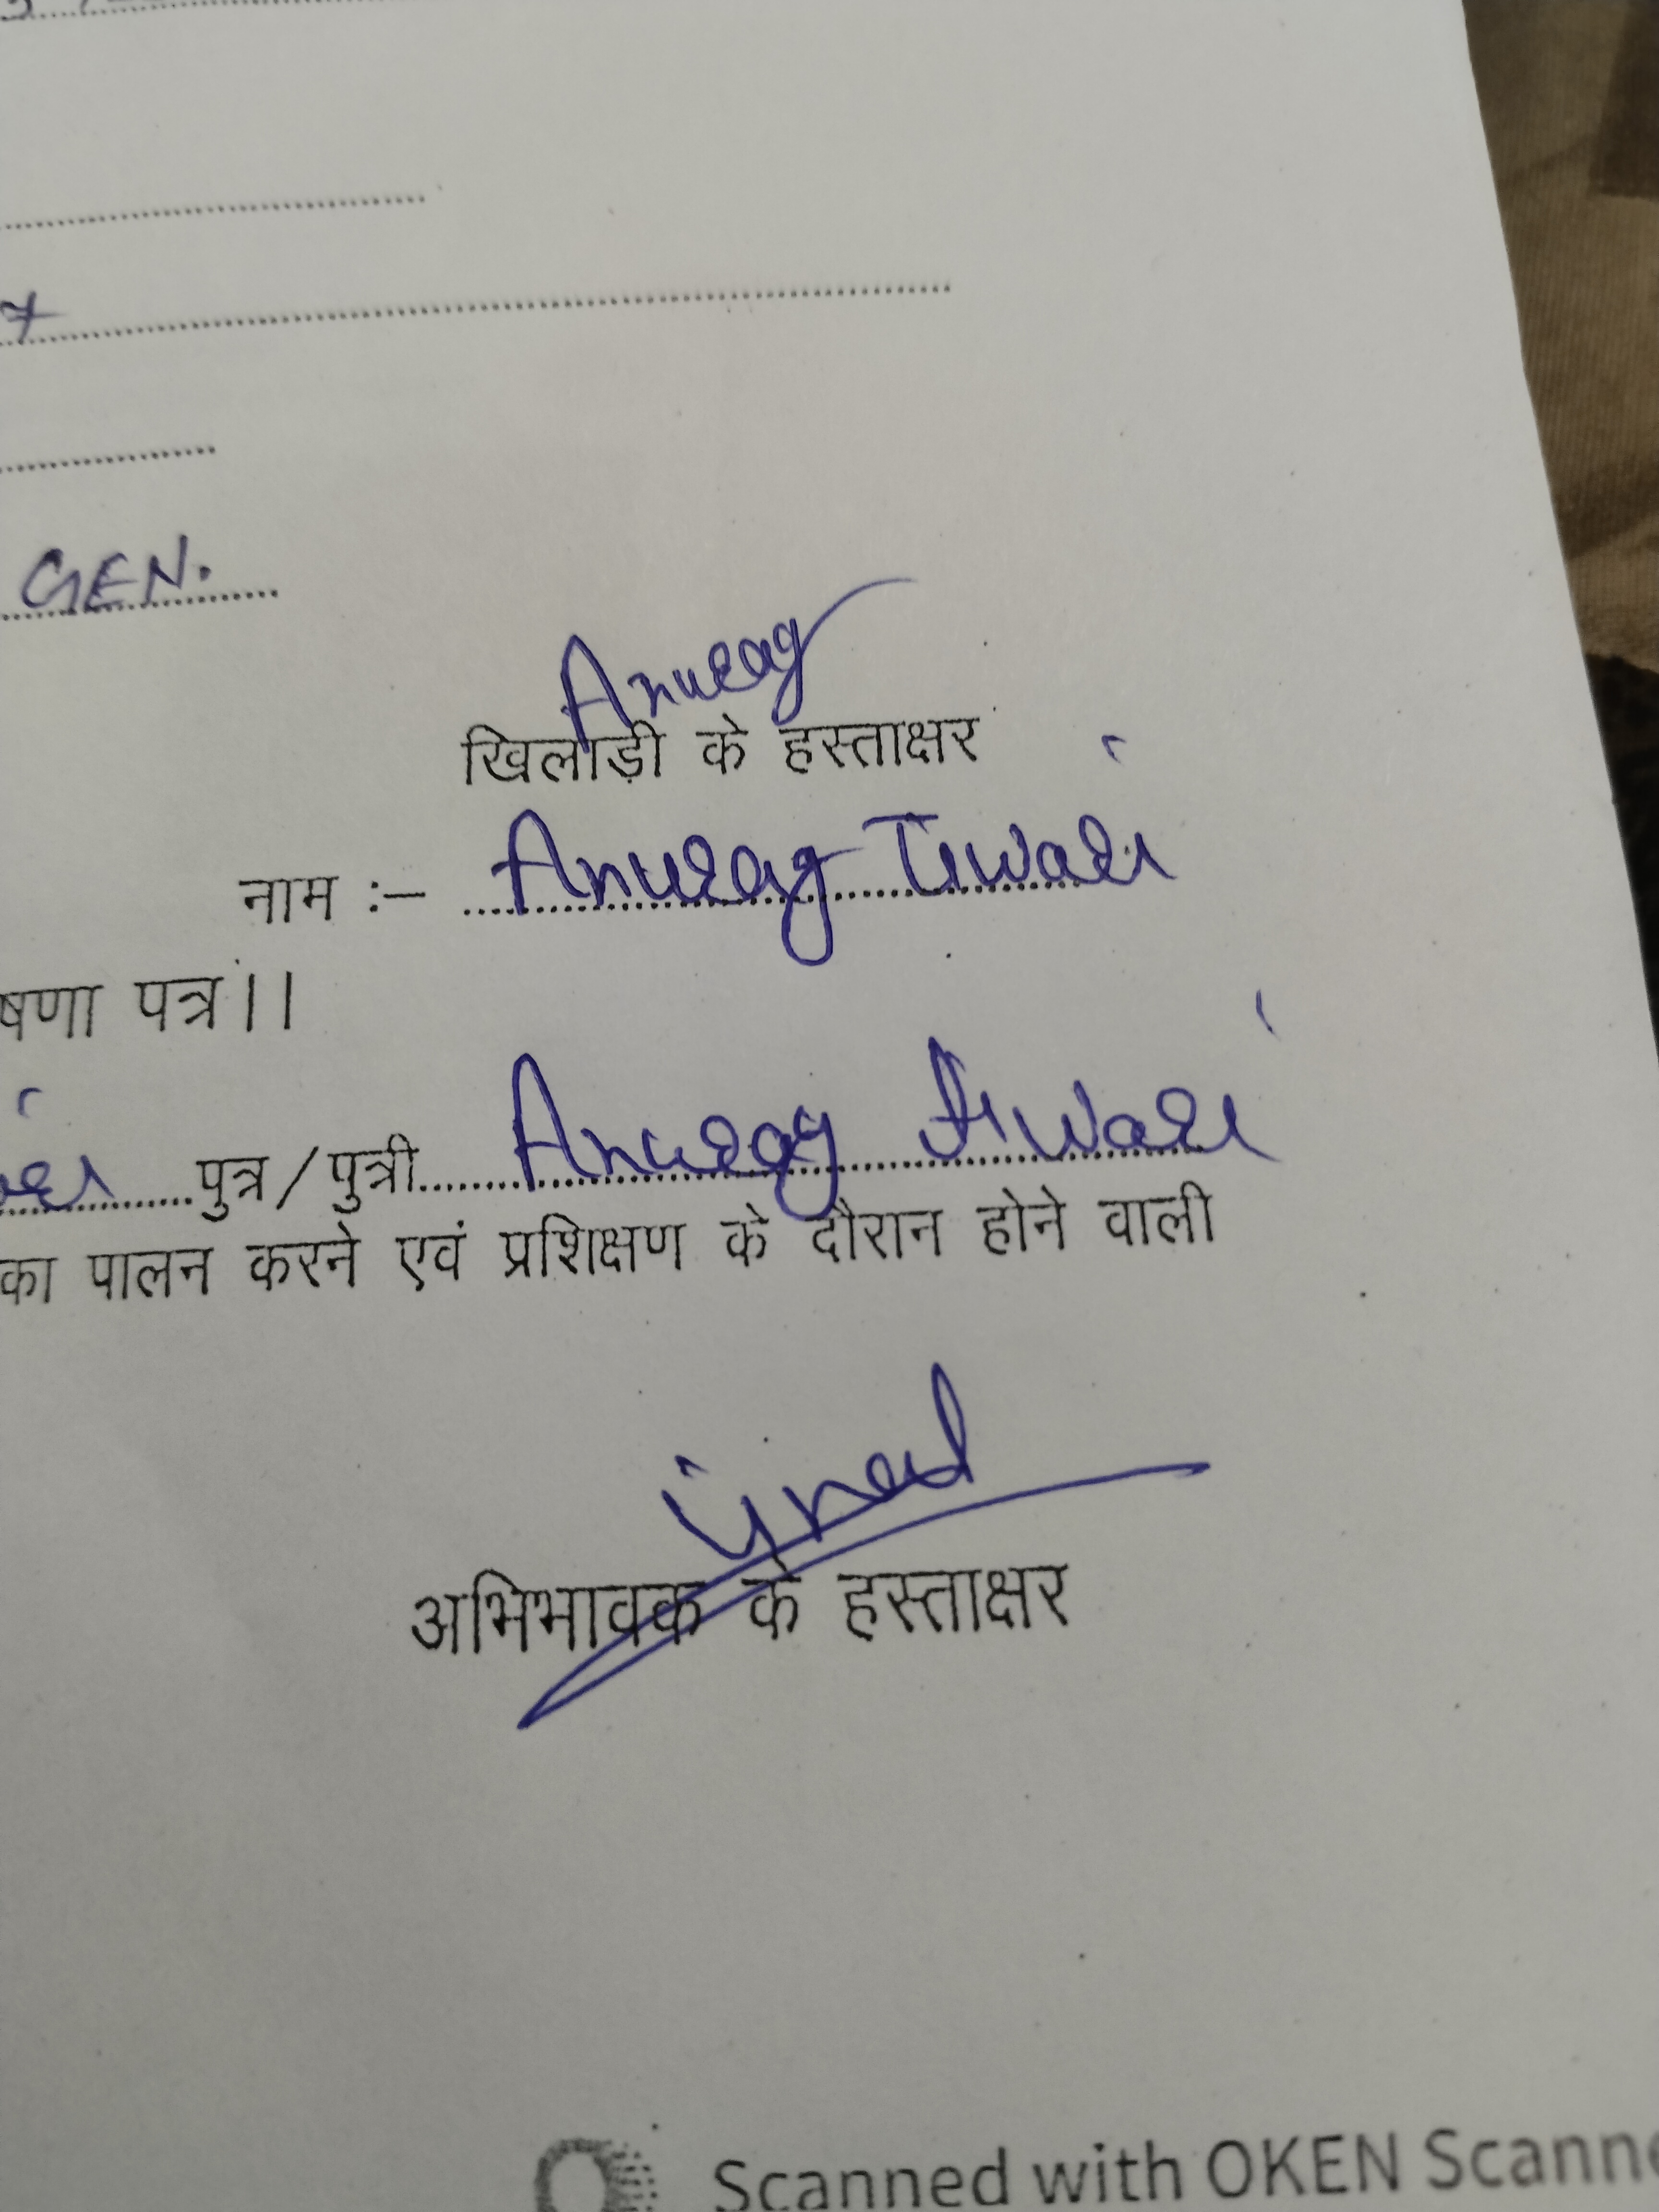 7
GEN.
Anurag
खिलाड़ी के हस्ताक्षर
नाम :– Anurag Tiwari
षणा पत्र।।
पुत्र/पुत्री Anurag Tiwari
का पालन करने एवं प्रशिक्षण के दौरान होने वाली
अभिभावक के हस्ताक्षर
Scanned with OKEN Scanne